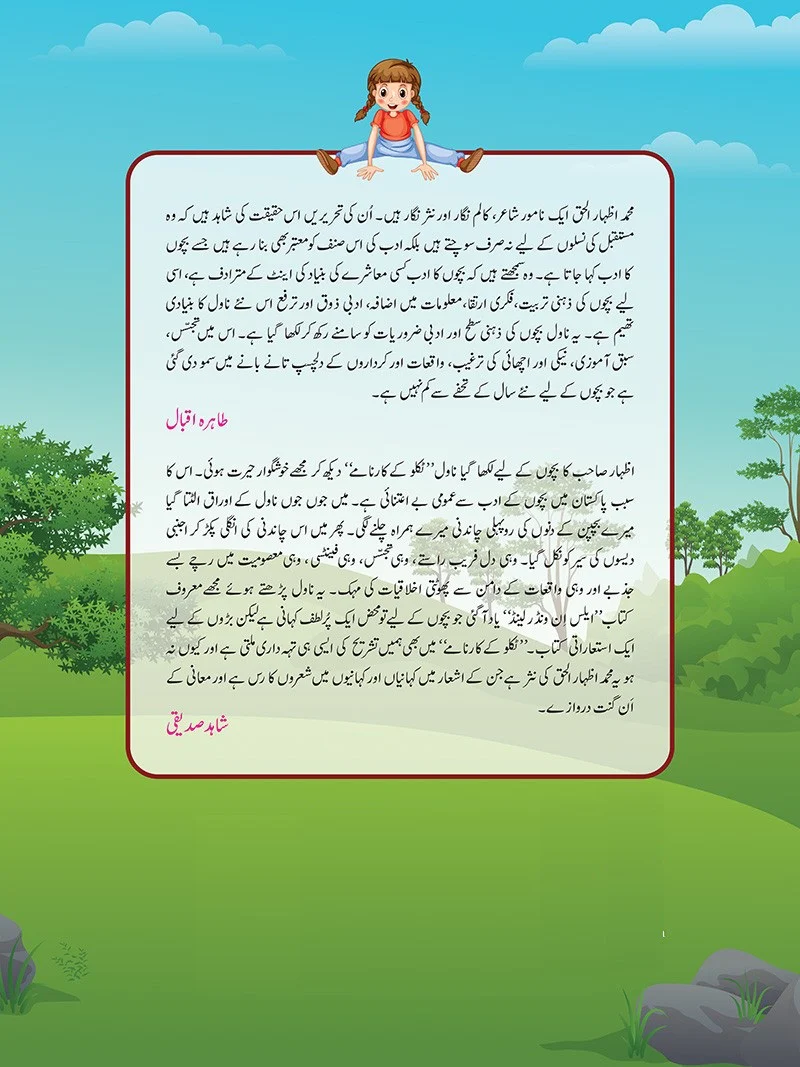 محمد اظہار الحق ایک نامور شاعر، کالم نگار اور نثر نگار ہیں۔ اُن کی تحریریں اس حقیقت کی شاہد ہیں کہ وہ
مستقبل کی نسلوں کے لیے نہ صرف سوچتے ہیں بلکہ ادب کی اس صنف کو معتبر بھی بنا رہے ہیں جسے بچوں
کا ادب کہا جاتا ہے۔ وہ سمجھتے ہیں کہ بچوں کا ادب کسی معاشرے کی بنیاد کی اینٹ کے مترادف ہے، اسی
لیے بچوں کی ذہنی تربیت، فکری ارتقا، معلومات میں اضافہ، ادبی ذوق اور ترفع اس نئے ناول کا بنیادی
تھیم ہے۔ یہ ناول بچوں کی ذہنی سطح اور ادبی ضروریات کو سامنے رکھ کر لکھا گیا ہے۔ اس میں تجسّس،
سبق آموزی، نیکی اور اچھائی کی ترغیب، واقعات اور کرداروں کے دلچسپ تانے بانے میں سمو دی گئی
ہے جو بچوں کے لیے نئے سال کے تحفے سے کم نہیں ہے۔
طاہرہ اقبال
اظہار صاحب کا بچوں کے لیے لکھا گیا ناول ’’ٹکلو کے کارنامے‘‘ دیکھ کر مجھے خوشگوار حیرت ہوئی۔ اس کا
سبب پاکستان میں بچوں کے ادب سے عمومی بے اعتنائی ہے۔ میں جوں جوں ناول کے اوراق الٹتا گیا
میرے بچپن کے دنوں کی روپہلی چاندنی میرے ہمراہ چلنے لگی۔ پھر میں اس چاندنی کی انگلی پکڑ کر اجنبی
دیسوں کی سیر کو نکل گیا۔ وہی دل فریب راستے، وہی تجسّس، وہی فینٹسی، وہی معصومیت میں رچے بسے
جذبے اور وہی واقعات کے دامن سے پھوٹتی اخلاقیات کی مہک۔ یہ ناول پڑھتے ہوئے مجھے معروف
کتاب ’’ایلس اِن ونڈر لینڈ‘‘ یاد آ گئی جو بچوں کے لیے تو محض ایک پُرلطف کہانی ہے لیکن بڑوں کے لیے
ایک استعاراتی کتاب۔ ’’ٹکلو کے کارنامے‘‘ میں بھی ہمیں تشریح کی ایسی ہی تہہ داری ملتی ہے اور کیوں نہ
ہو یہ محمد اظہار الحق کی نثر ہے جن کے اشعار میں کہانیاں اور کہانیوں میں شعروں کا رس ہے اور معانی کے
اَن گنت دروازے۔
شاہد صدیقی
۱